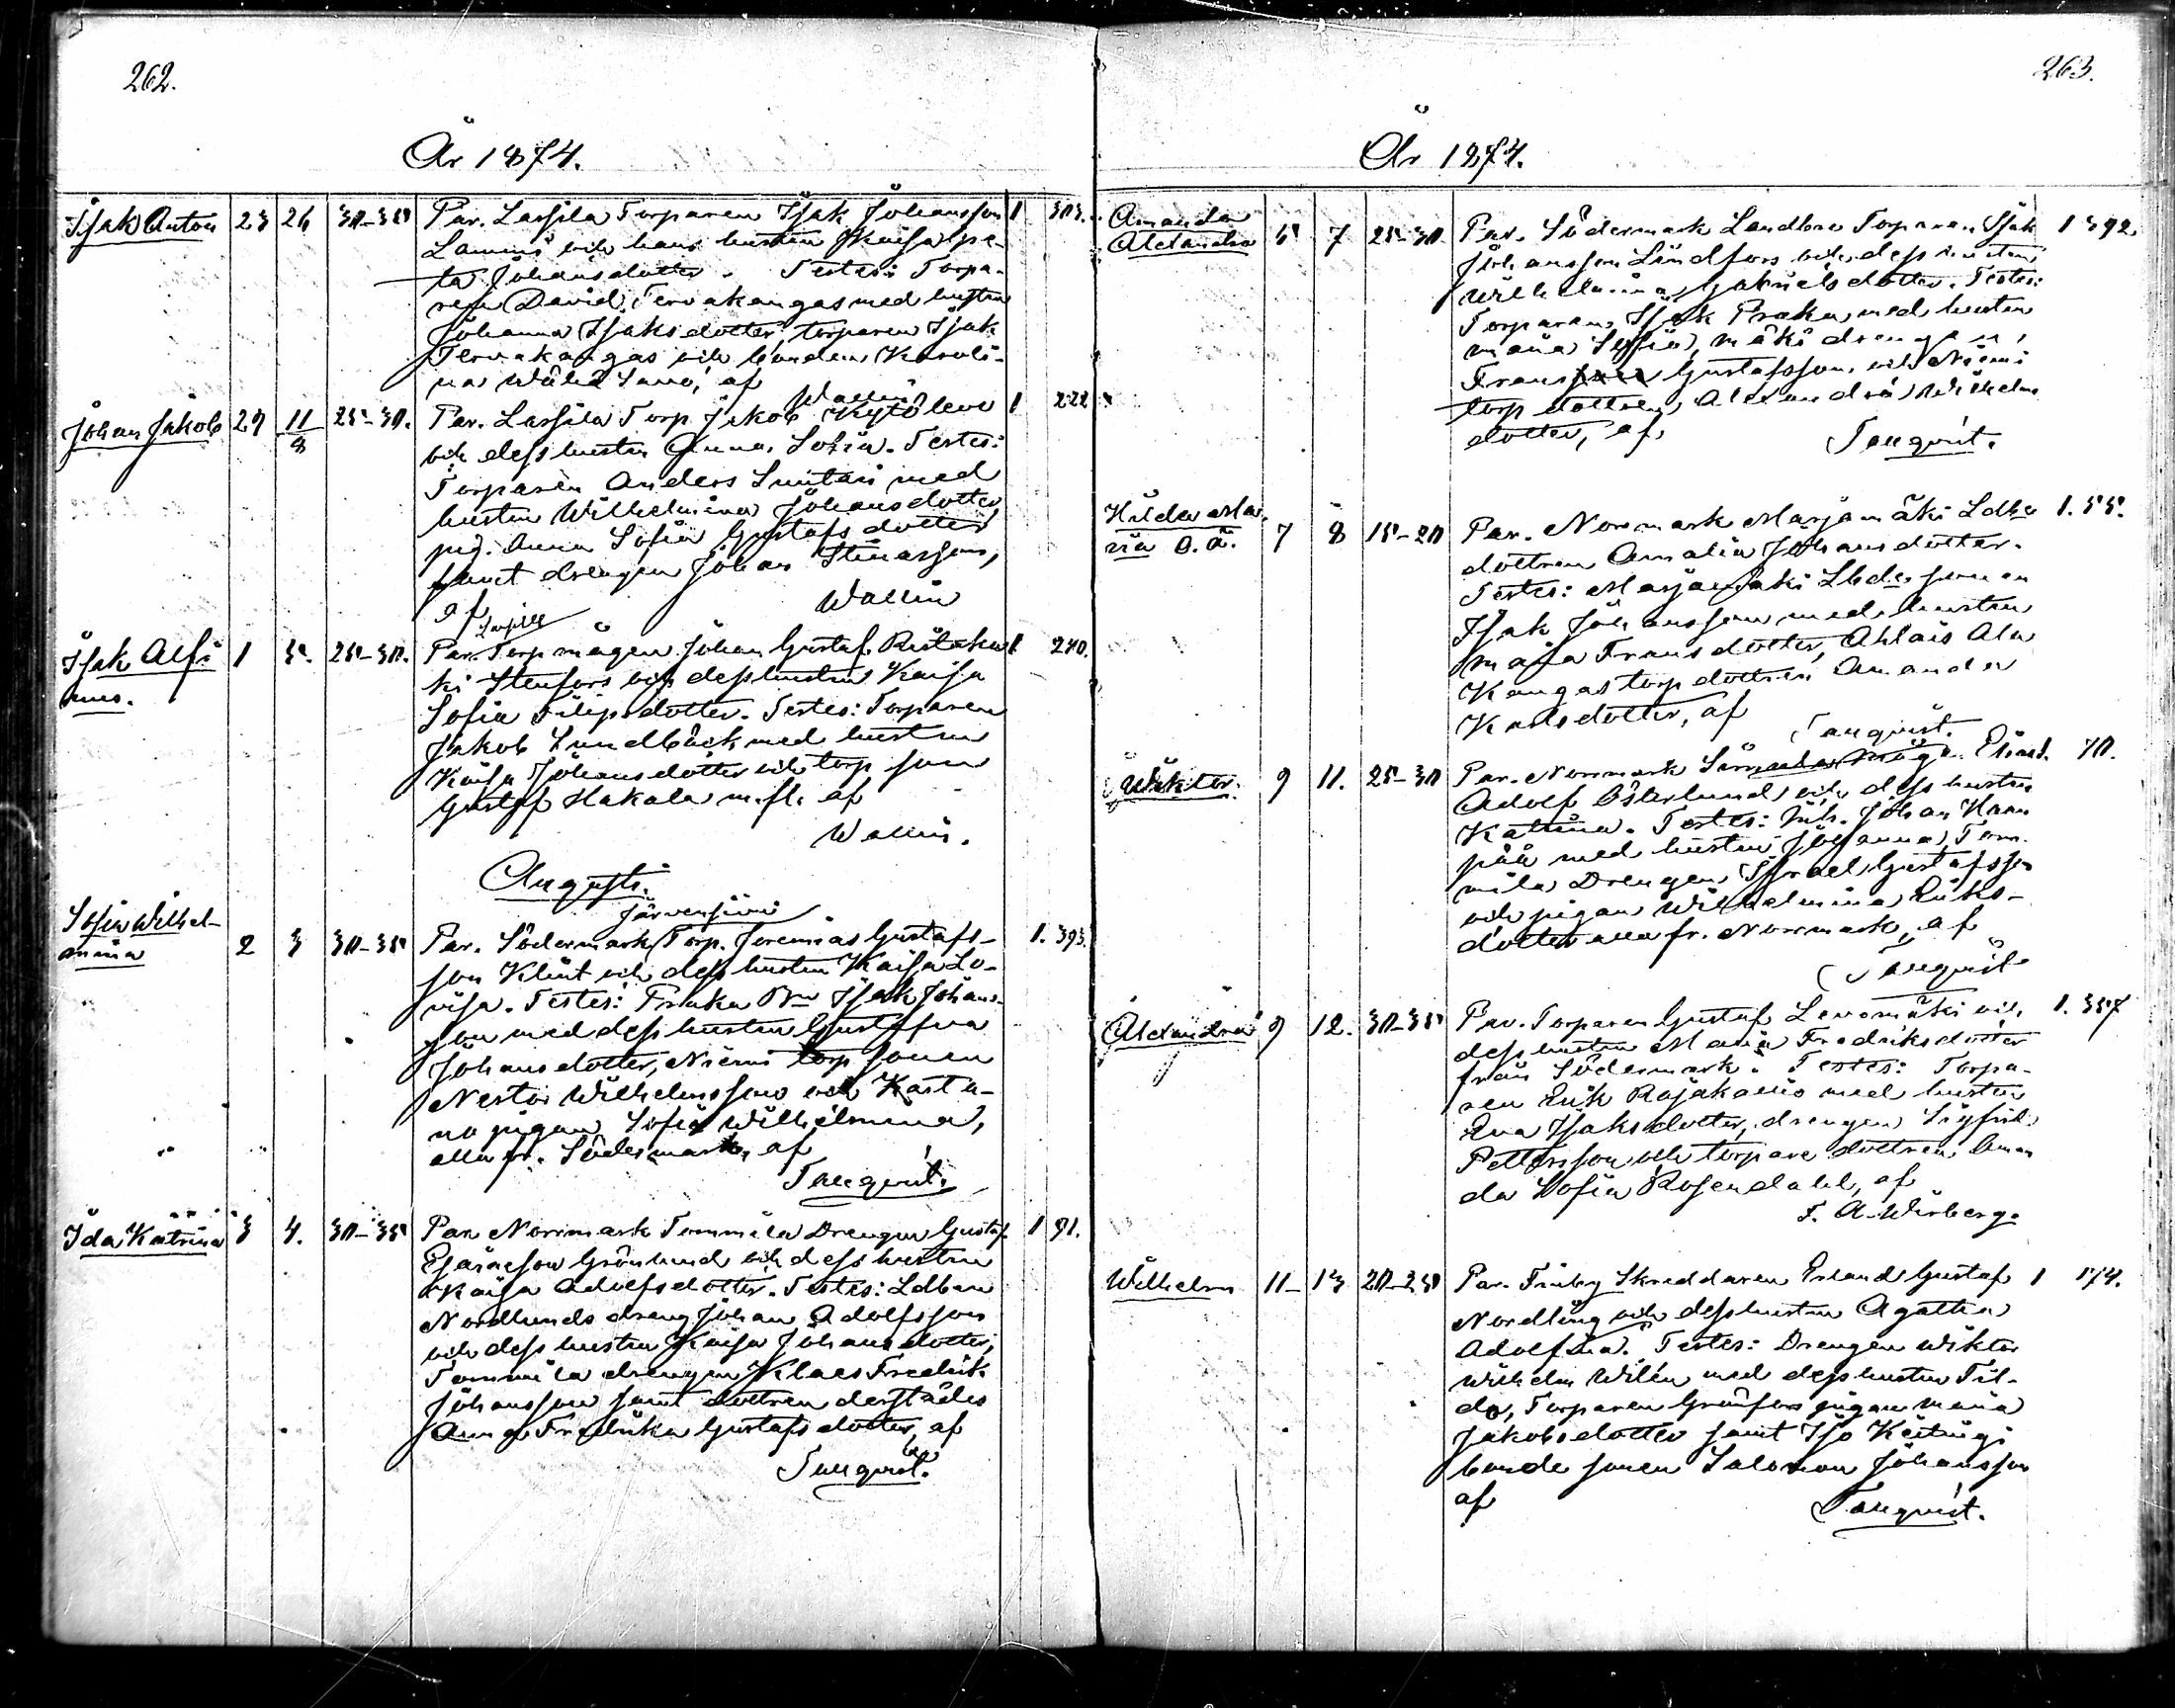 262.
År 1874.
Isak Anton 23 26 30-35 Par. Lassila Torparen Isak Johansson 1 303.
Lammi och hans hustru Kaisa Gre-
ta Johansdotter. Testes: Torpa-
ren David Tervakangas med hustru
Johanna Isaksdotter, torparen Isak
Tervakangas och bonden Karoli-
na, af
Wallin
Johan Jakob 29 11/8 25-30. Par. Lassila Torp. Jakob Kytöleve 1 222
och dess hustru Anna Sofia. Testes:
Torparen Anders Smitari med
hustru Wilhelmina Johansdotter,
pig. Anna Sofia Gustafsdotter
samt drengen Johan Stenasson,
af Wallin
Lassila
Isak Alfi 1 5. 25-30. Par. Torp mågen Johan Gustaf Ristaha 1 240.
nus. ki Stenfors och dess hustru Kaisa
Sofia Filipsdotter. Testes: Torparen
Jakob Sundbäck med hustru
Kaisa Johansdotter och torp son
Gustaf Hakala m.fl. af
Wallin.
Augusti.
Järvensivu
Sofia Wilhel-
mina 2 3 30-35 Par. Södermark Torp. Jeremias Gustafs- 1. 393.
son Klint och dess hustru Kaisa Lo-
visa. Testes: Praka Bn Isak Johans-
son med dess hustru Gustafva
Johansdotter, Niemi torp sonen
Nestor Wilhelmsson och Kastu-
na pigan Sofia Wilhelmina,
alla fr. Södermark, af
Tallqvist.
Ida Katrina 3 4. 30-35 Par. Norrmark Tommila Drengen Gustaf 1 91.
Esaiasson Grönlund och dess hustru
Kaisa Adolfsdotter. Testes: Ldbon
Nordlunds dreng Johan Adolfsson
och dess hustru Kaisa Johansdotter,
Tommila drengen Klaes Fredrik
Johansson samt dottren derstädes
Anna Fredrika Gustafsdotter, af
Tallqvist.
263.
År 1874.
Amanda
Alexandra 5 7 25-30. Par. Södermark Landbo Torparen Isak 1 392.
Johansson Lindfors och dess hustru
Wilhelmina Gabrielsdotter. Testes:
Torparen Isak Praka med hustru
Maria Sofia, Mäki drengen
Frans Gustafsson och Niemi
torp dottren Alexandra Wilhelms
dotter, af
Tallqvist.
Hilda Ma-
ria o.ä. 7 8 15-20 Par. Norrmark Marjamäki Ldbo 1. 55.
dottren Amalia Johansdotter.
Testes: Marjamäki Lbde sonen
Isak Johansson med hustru
Maja Fransdotter, Ahlais Ala
Kangas torp dottren Amanda
Karlsdotter, af
Tallqvist.
Wiktor. 9 11. 25-30 Par. Norrmark mågen Erland 1. 70.
Adolf Österlund och dess hustru
Katrina. Testes: Inh. Johan Haan
pää med hustru Johanna, Tom-
mila Drengen Israel Gustafsson
och pigan Wilhelmina Eriks-
dotter alla fr. Norrmark, af
Tallqvist
Alexandra 9 12. 30-35 Par. Torparen Gustaf Levomäki och 1. 357
dess hustru Maria Fredriksdotter
från Södermark. Testes: Torpa-
ren Erik Rajakallio med hustru
Eva Isaksdotter, drengen Sigfrid
Pettersson och torpare dottren Aman
da Sofia Rosendahl, af
F. A. Wirberg.
Wilhelm 11- 13 20-25 Par. Finby Skreddaren Erland Gustaf 1 174.
Nordling och dess hustru Agatha
Adolfina. Testes: Drengen Wiktor
Wilhelm Wilén med dess hustru Til-
da, Torparen Grönfors pigan Maria
Jakobsdotter samt Iso Keitügi
bonde sonen Salomon Johansson
af Tallqvist.